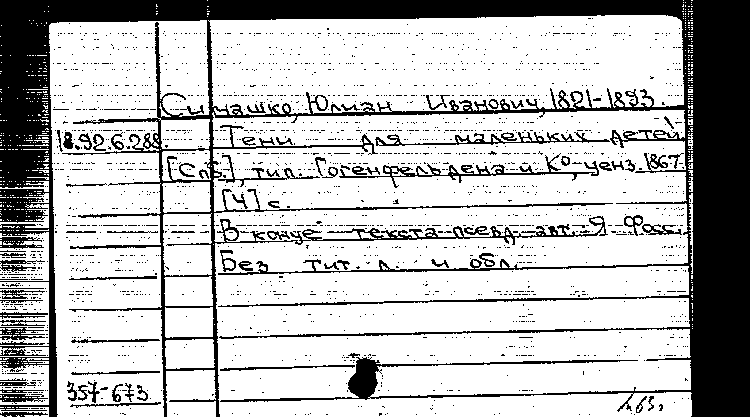 Симашко, Юлиан Иванович, 1821-1893.
18.92.6.288. Тени для маленьких детей.
[Спб.], тип. Гогенфельдена и К°, ценз. 1867.
[4] с.
В конце текста псевд. авт. Я Фасс.
Без тит. л. и обл.
357-673